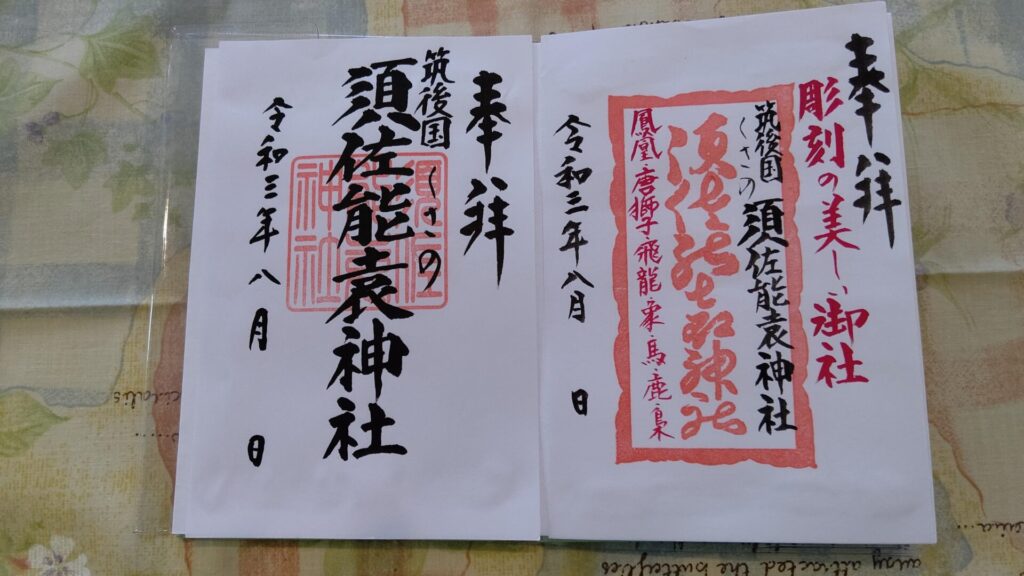 奉拝
彫刻の美しい御社
筑後国
くさの
須佐能袁神社
須佐能袁神社
鳳凰・唐獅子・飛龍・・馬・鹿・梟
令和三年八月 日
奉拝
筑後国
くさの
須佐能袁神社
須佐能袁神社
令和三年八月 日
attracted the butterflies